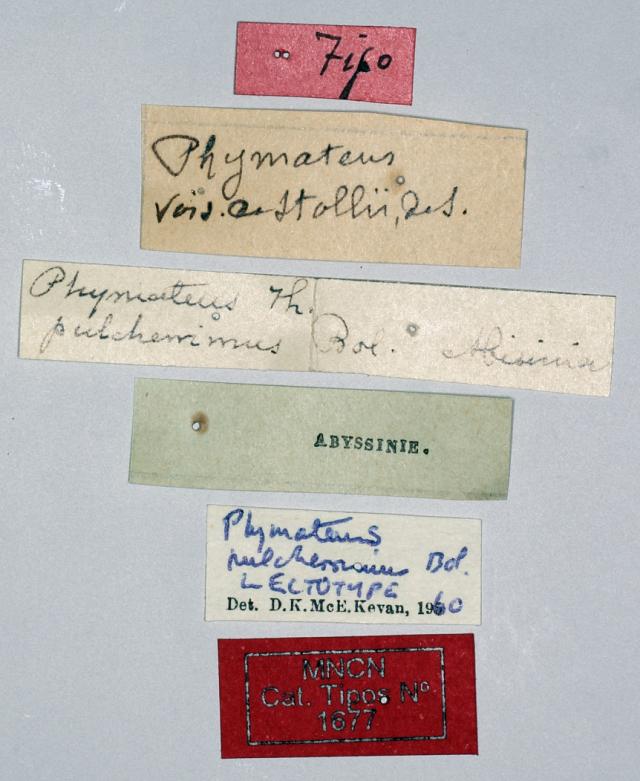 Tipo
Phymateus
Vois. a Stollii, de S.
Phymateus Th.
pulcherrimus Bol. Abisinia
ABYSSINIE.
Phymateus
pulcherrimus Bol.
LECTOTYPE
Det. D.K.McE.Kevan, 1960
MNCN
Cat. Tipos Nº.
1677